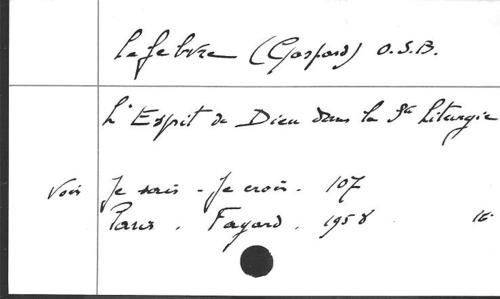 Lefebvre (Gaspard) O.S.B.
L'Esprit de Dieu dans la Ste Liturgie
Voir Je sais - Je crois. 107
Paris. Fayard. 1958. 16